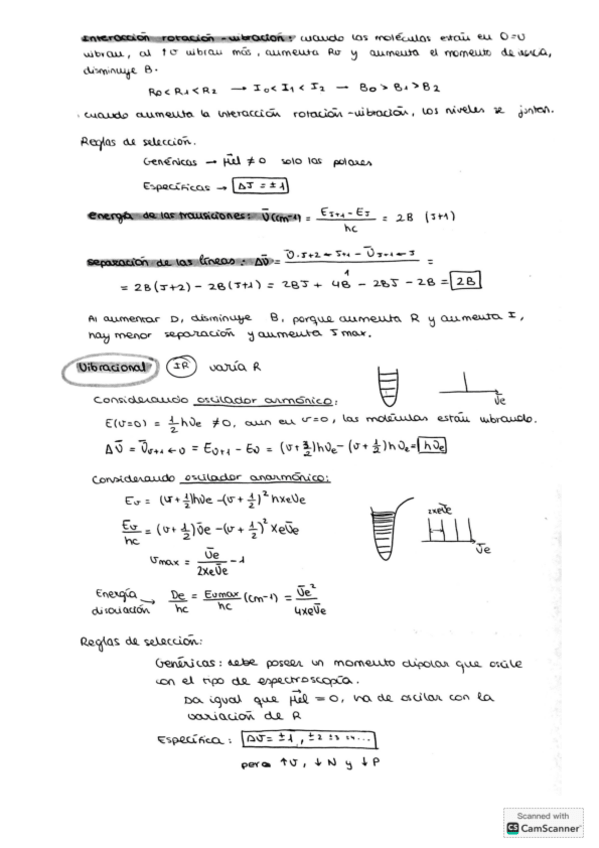 Interacción rotación-vibración: cuando las moléculas están en v=0
vibran, al ↑v vibran más, aumenta Rv y aumenta el momento de inercia,
disminuye B.
R₀ < R₁ < R₂ → I₀ < I₁ < I₂ → B₀ > B₁ > B₂
· cuando aumenta la interacción rotación-vibración, los niveles se juntan.
Reglas de selección.
Genéricas → μ⃗el ≠ 0 solo las polares
Específicas → ΔJ = ±1
energía de las transiciones: ῡ(cm-1) = (E_J+1 - E_J)/hc = 2B (J+1)
separación de las líneas: Δῡ = ῡ J+2←J+1 - ῡ J+1←J =
= 2B(J+2) - 2B(J+1) = 2BJ + 4B - 2BJ - 2B = 2B
Al aumentar D, disminuye B, porque aumenta R y aumenta I,
hay menor separación y aumenta J max.
Vibracional IR varía R
Considerando oscilador armónico:
ῡe
E(v=0) = 1/2 hνe ≠ 0, aun en v=0, las moléculas están vibrando.
Δῡ = ῡ v+1←v = E v+1 - Ev = (v+3/2)hνe - (v+1/2)hνe = hνe
Considerando oscilador anarmónico:
Ev = (v+1/2)hνe - (v+1/2)² hxeνe
2xeῡe
Ev/hc = (v+1/2)ῡe - (v+1/2)² xeῡe
ῡe
vmax = ῡe/2xeῡe - 1
Energía disociación → De/hc = Evmax/hc (cm-1) = ῡe²/4xeῡe
Reglas de selección:
Genéricas: debe poseer un momento dipolar que oscile
con el tipo de espectroscopía.
Da igual que μ⃗el = 0, ha de oscilar con la
variación de R
Específica: Δv = ±1, ±2 ±3 ...
pero ↑v, ↓N y ↓P
Scanned with
CS CamScanner